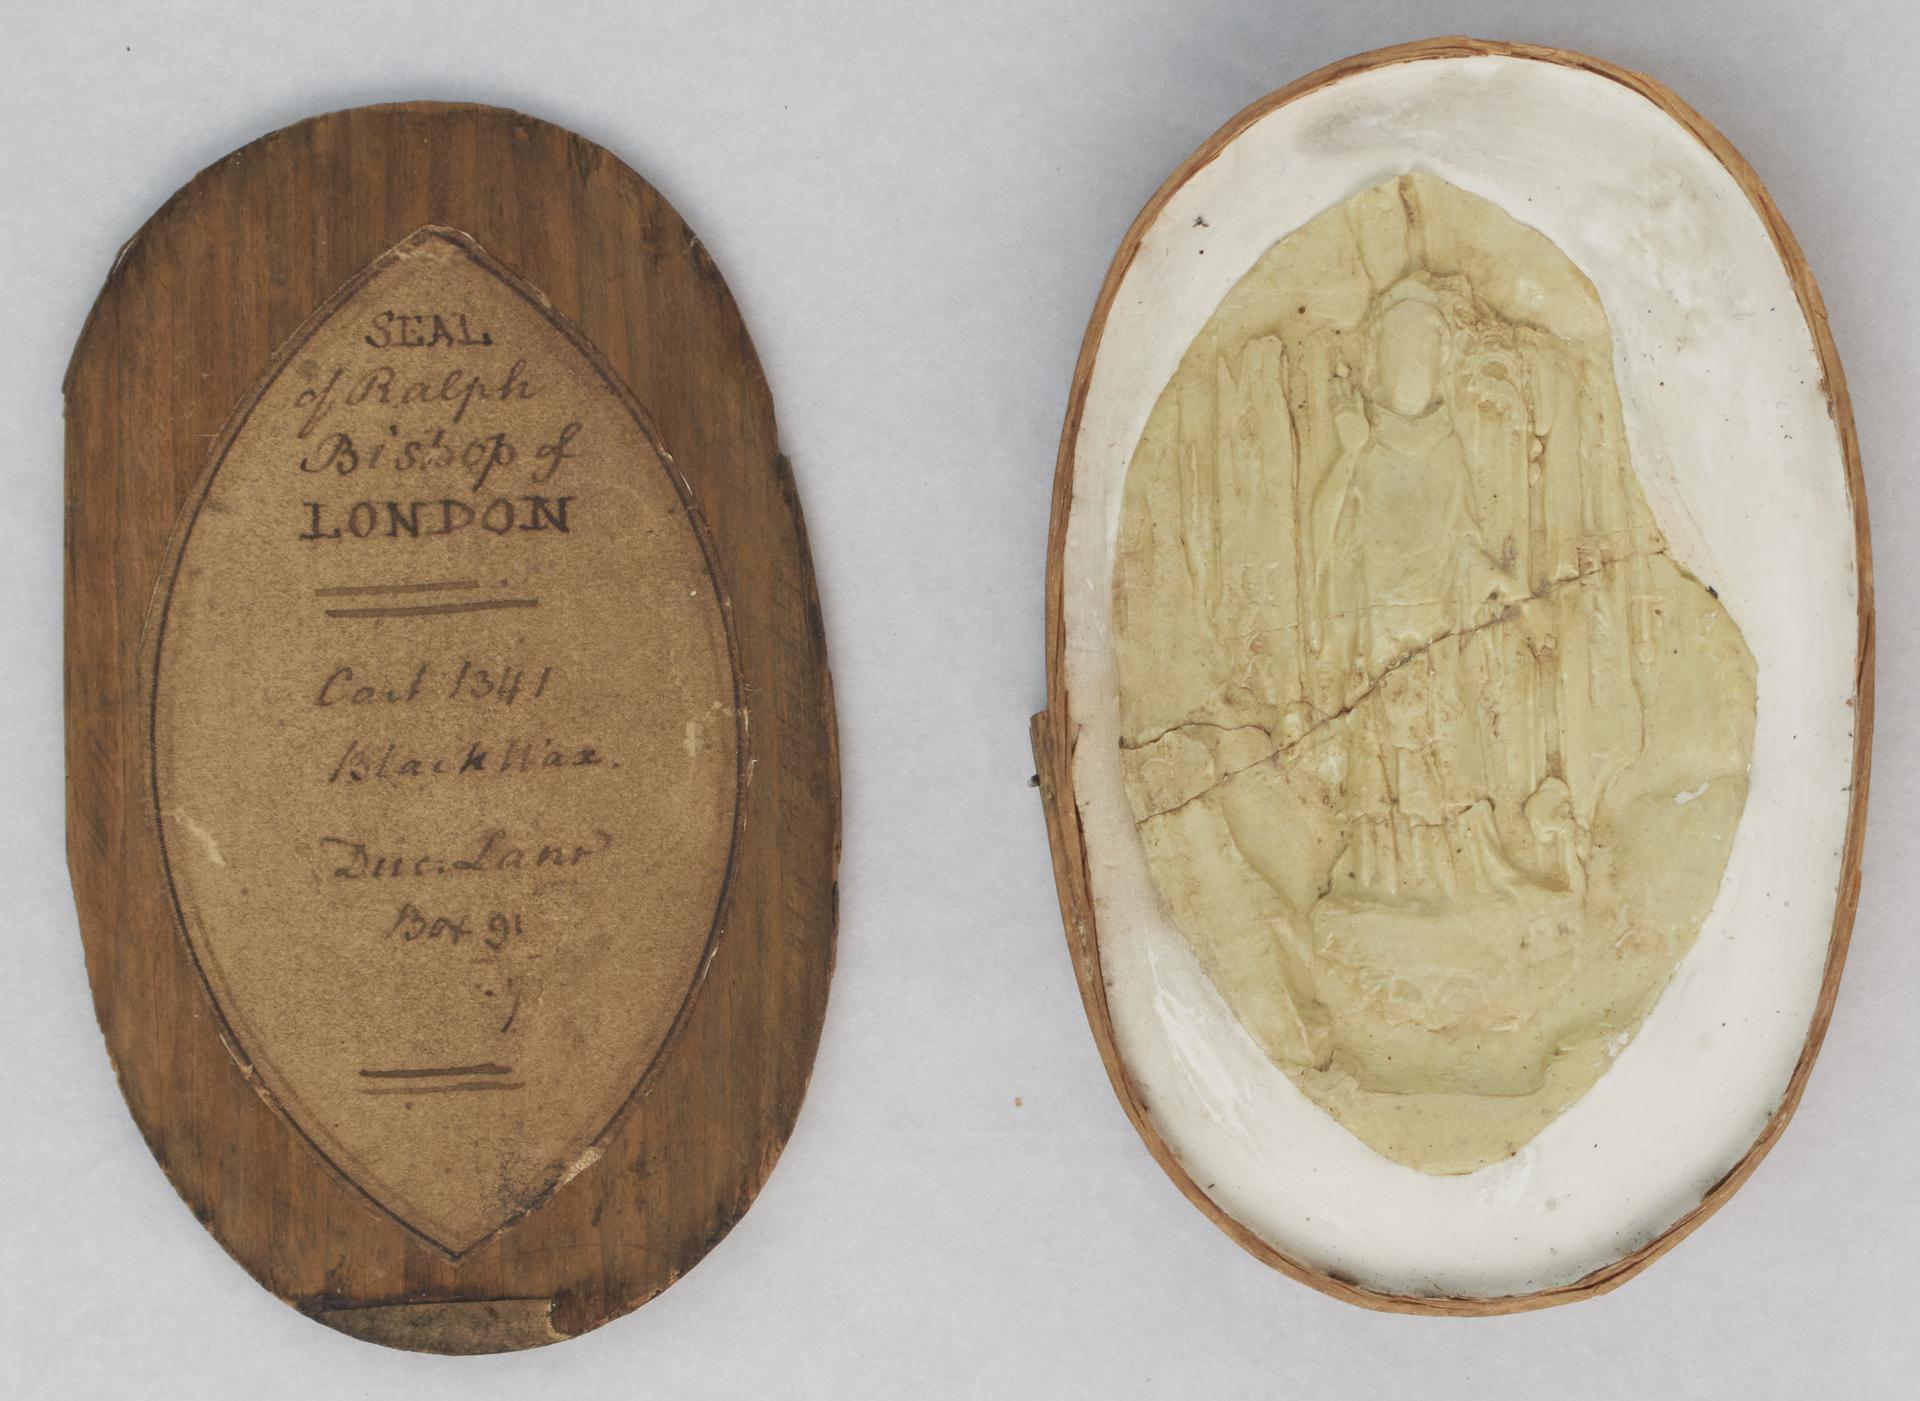 SEAL
of Ralph
Bishop of
LONDON
Cart 1341
Black Wax.
Duc. Lanr
Box 91